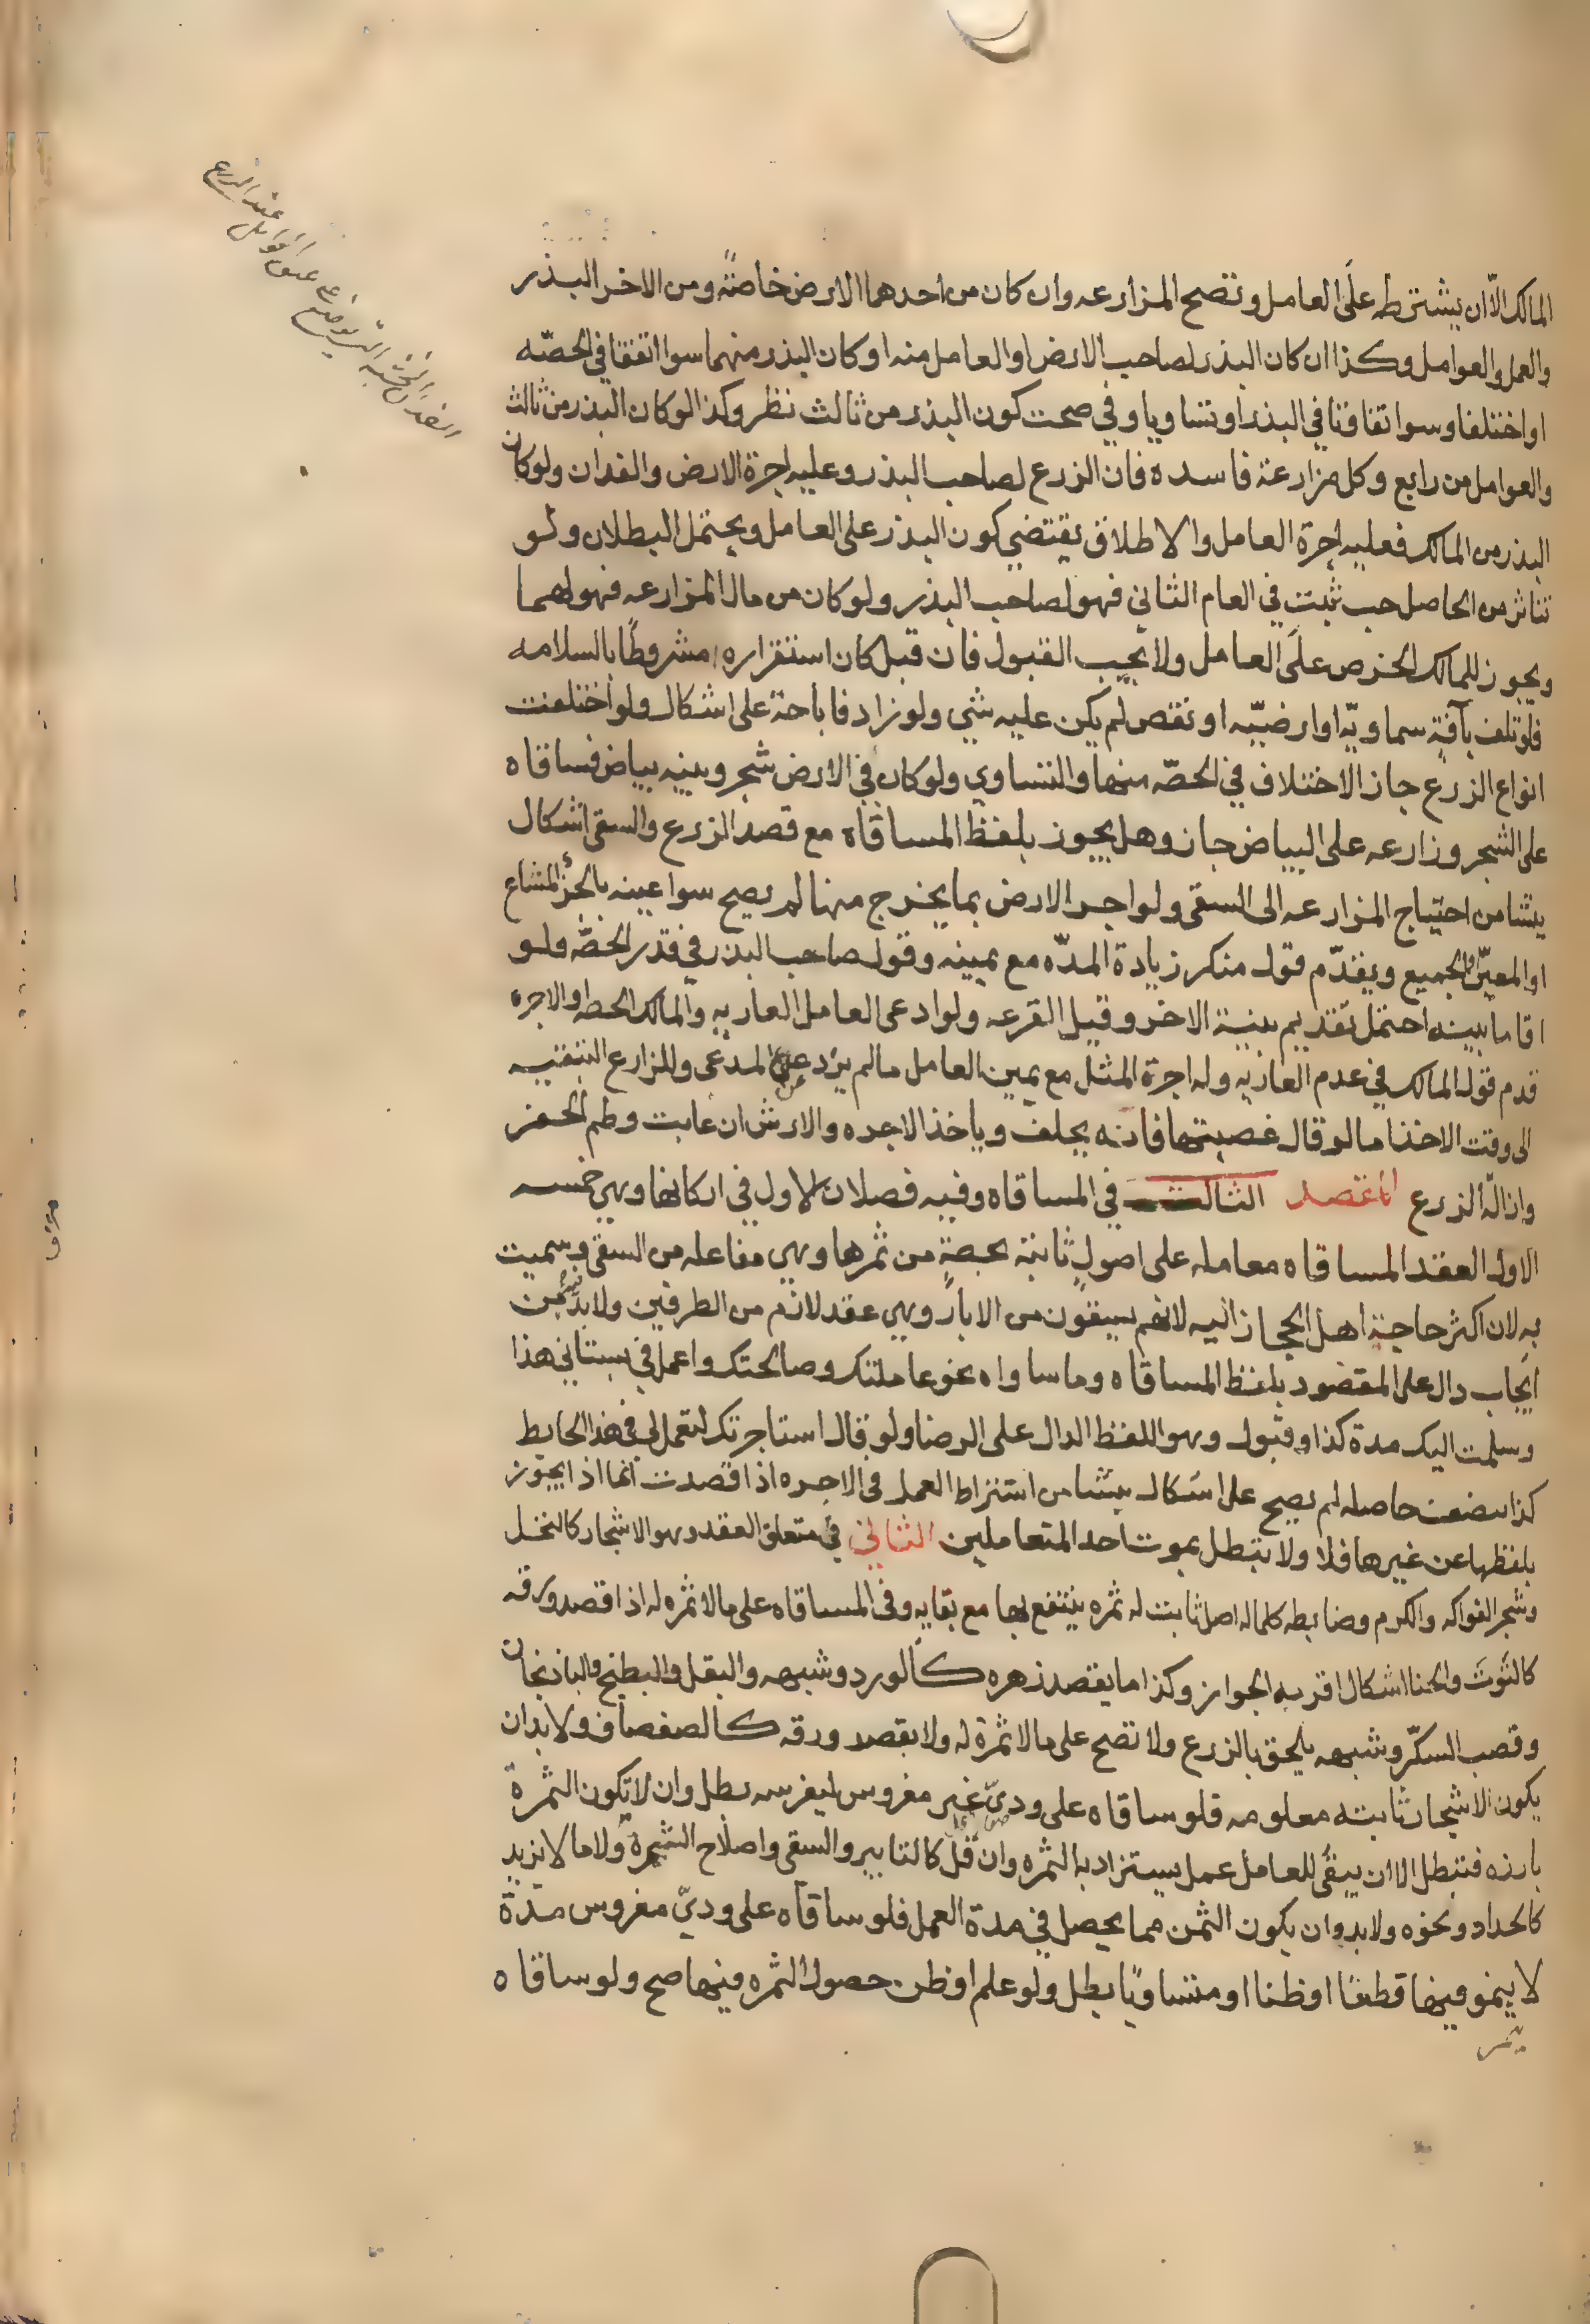 المالك الّا ان يشترطه علَى العامل وتصح المزارعه وان كان من احدهما الارض خاصّةً ومن الاخر البذر
والعمل والعوامل وكذا ان كان البذر لصاحب الارض او العامل منه او كان البذر منهما سوا اتفقا في الحصّه
او اختلفا وسوا تفاوتا في البذر او تساويا وفي صحت كون البذر من ثالث نظر وكذا لو كان البذر من ثالث
والعوامل من رابع وكل مزارعة فاسده فان الزرع لصاحب البذر وعليه اجرة الارض والفدان ولو كان
البذر من المالك فعليه اجرة العامل والاطلاق يقتضي كون البذر على العامل ويحتمل البطلان ولو
تناثر من الحاصل حب ثبت في العام الثاني فهو لصاحب البذر ولو كان من مال المزارعه فهو لهما
ويجوز للمالك الخرص علَى العامل ولا يجب القبول فان قبل كان استقراره مشروطًا بالسلامه
فلو تلف بآفةٍ سماويّه او ارضيّه او نقص لم يكن عليه شي ولو زاد فاباحة على اشكال ولو اختلفت
انواع الزرع جاز الاختلاف في الحصّه منها والتساوي ولو كان في الارض شجر وبينه بياض فساقاه
على الشجر وزارعه على البياض جاز وهل يجوز بلفظ المساقاه مع قصد الزرع والسقى اشكال
ينشا من احتياج المزارعه الى السقى ولو اجر الارض بما يخرج منها لم يصح سوا عينه بالجزُء المشاع
او المعيّن والجميع ويقدّم قول منكر زيادة المدّه مع يمينه وقول صاحب البذر في قدر الحصّه ولو
اقاما بينه احتمل تقديم بينة الاخر وقيل القرعه ولو ادعى العامل العاريه والمالك الحصه او الاجره
قدم قول المالك في عدم العاريه وله اجرة المثل مع يمين العامل ما لم يزد عن المدعى وللزارع التبقيه
الى وقت الاخذ اما لو قال غصبتها فانه يحلف وياخذ الاجره والارش ان عابت وطم الحفر
وازالة الزرع المقصد الثالث في المساقاه وفيه فصلان الاول في اركانها وهي خمسه
الاول العقد المساقاه معامله على اصولٍ ثابتة بحصةٍ من ثمرها وهي مفاعله من السقى وسميت
به لان اكثر حاجة اهل الحجاز اليه لانهم يسقون من الابار وهي عقد لازم من الطرفين ولا بد فيه من
ايجاب دال على المقصود بلفظ المساقاه وما ساواه نحو عاملتك وصالحتك واعمل في بستاني هذا
وسلمت اليك مدة كذا وقبول وهو اللفظ الدال على الرضا ولو قال استاجرتك لتعمل لي في هذا الحايط
كذا بنصف حاصله لم يصح على اشكال ينشا من اشتراط العمل في الاجره اذا قصدت اما اذا تجوز
بلفظها عن غيرها فلا ولا تبطل بموت احد المتعاملين الثاني في متعلق العقد وهو الاشجار كالنخل
وشجر الفواكه والكرم وضابطه كلما له اصل ثابت له ثمره ينتفع بها مع بقايه وفي المساقاه على ما لا ثمره له اذا قصد ورقه
كالتوث والحنا اشكال اقربه الجواز وكذا ما يقصد زهره كالورد وشبهه والبقل والبطيخ والباذنجان
وقصب السكّر وشبهه يلحق بالزرع ولا تصح على ما لا ثمرة له ولا يقصد ورقه كالصفصاف ولا بد ان
يكون الاشجار ثابته معلومه فلو ساقاه على وديّ غير مغروس ليغرسه بطل وان لا تكون الثمرة
بارزه فتبطل الا ان يبقى للعامل عمل يستزاد به الثمره وان قل كالتابير والسقى واصلاح الثمرة ولا ما لا يزيد
كالجداد ونحوه ولا بد وان يكون الثمن مما يحصل في مدة العمل فلو ساقاه على وديّ مغروس مدة
لا ينمو فيها قطعًا او ظنا او متساويًا بطل ولو علم او ظن حصول الثمره فيها صح ولو ساقاه